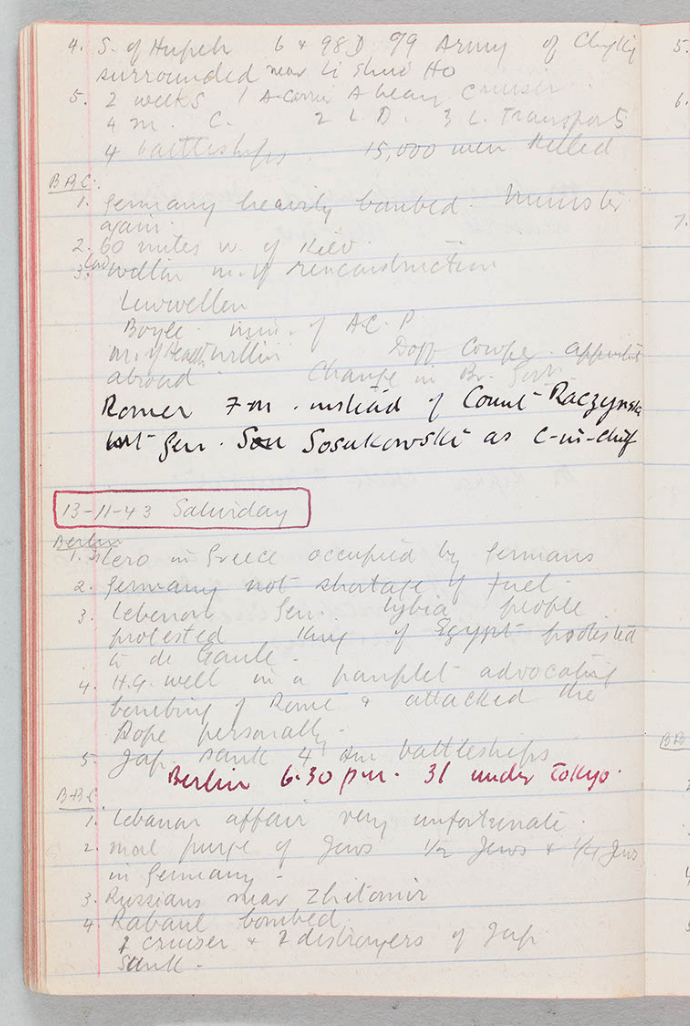 4. S. of Hupeh 6 & 98 D 79 Army of
surrounded near Li Shui Ho
5. 2 weeks 1 A-Carrier A heavy Cruiser
4 m. C. 2 L. D. 3 L. Transports
4 battleships 15,000 men killed
B.B.C.
1. Germany heavily bombed. Munster
again.
2. 60 miles w. of Kiev.
3. Lord Woolton m. of reconstruction
Lewwellen
Boyle min. of A.C.P
m. of Health Willin Doff Cowper appointed
abroad Change in Br. Govt
Romer F-m. instead of Count Raczynski
Gen. Sosukowski as C-in-chief
13-11-43 Saturday
Berlin
1. Lero in Greece occupied by Germans
2. Germany not shortage of fuel.
3. Lebenon Gen. Lybia people
protested King of Egypt protested
to de Gaule.
4. H.G. well in a pamplet advocating
bombing of Rome & attacked the
Pope personally.
5. Jap sank 4 Am battleships
Berlin 6.30 p.m. 31 under Tokyo.
B.B.C.
1. Lebanon affair very unfortunate.
2. more purge of Jews 1/2 Jews & 1/4 Jews
in Germany -
3. Russians near Zhitomir
4. Rabaul bombed
1 cruiser & 2 distroyers of Jap
sank -
5.
6.
7.
BB